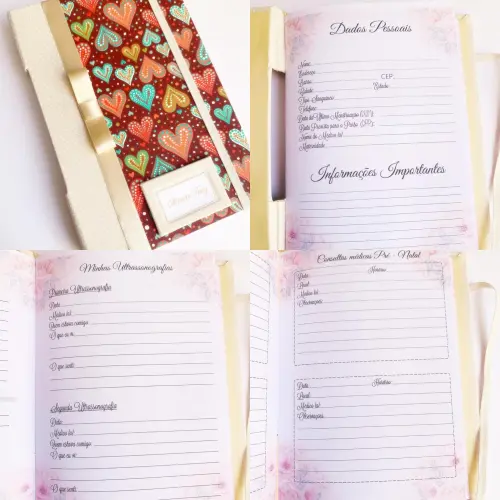 Dados Pessoais
Nome:
Endereço:
Bairro: CEP:
Cidade: Estado:
Tipo Sanguíneo:
Telefone:
Data da Última Menstruação (DUM):
Data Prevista para o Parto (DPP):
Nome do Médico (a):
Maternidade:
Informações Importantes
Minhas Ultrassonografias
Primeira Ultrassonografia
Data:
Médico (a):
Quem estava comigo:
O que eu vi:
O que senti:
Segunda Ultrassonografia
Data:
Médico (a):
Quem estava comigo:
O que eu vi:
O que senti:
Consultas médicas Pré - Natal
Data: Horário:
Local:
Médico (a):
Observações:
Data: Horário:
Local:
Médico (a):
Observações: